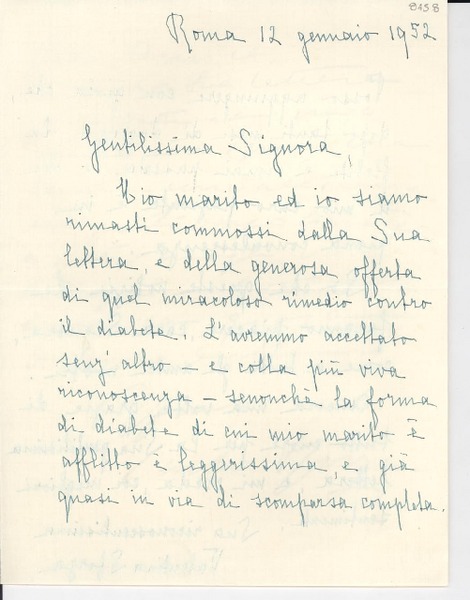 8158
Roma 12 gennaio 1952
Gentilissima Signora
Mio marito ed io siamo
rimasti commossi dalla Sua
lettera e della generosa offerta
di quel miracoloso rimedio contro
il diabete. L'avremmo accettato
senz'altro – e colla più viva
riconoscenza – senonchè la forma
di diabete di cui mio marito è
afflitto è leggerissima e già
quasi in via di scomparsa completa.